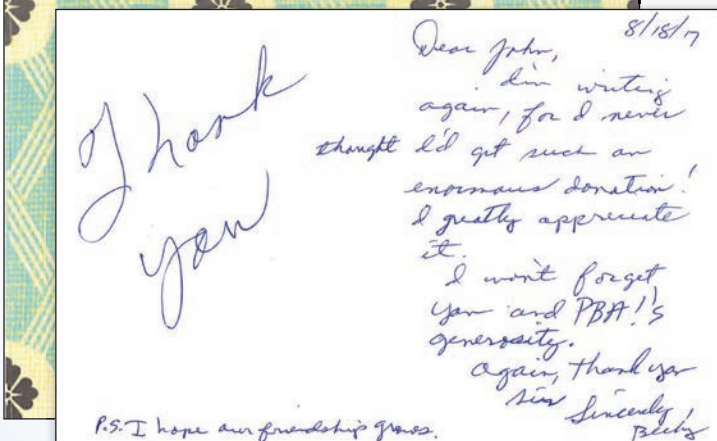 Thank
you
8/18/17
Dear John,
I'm writing
again, for I never
thought I'd get such an
enormous donation!
I greatly appreciate
it.
I won't forget
you and PBA!'s
generosity.
Again, thank you
Sincerely,
Becky
P.S. I hope our friendship grows.